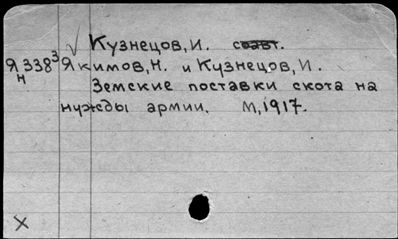 Кузнецов, И. соавт.
Я 338³ Якимов, Н. и Кузнецов, И.
н
Земские поставки скота на
нужды армии. М, 1917.
X